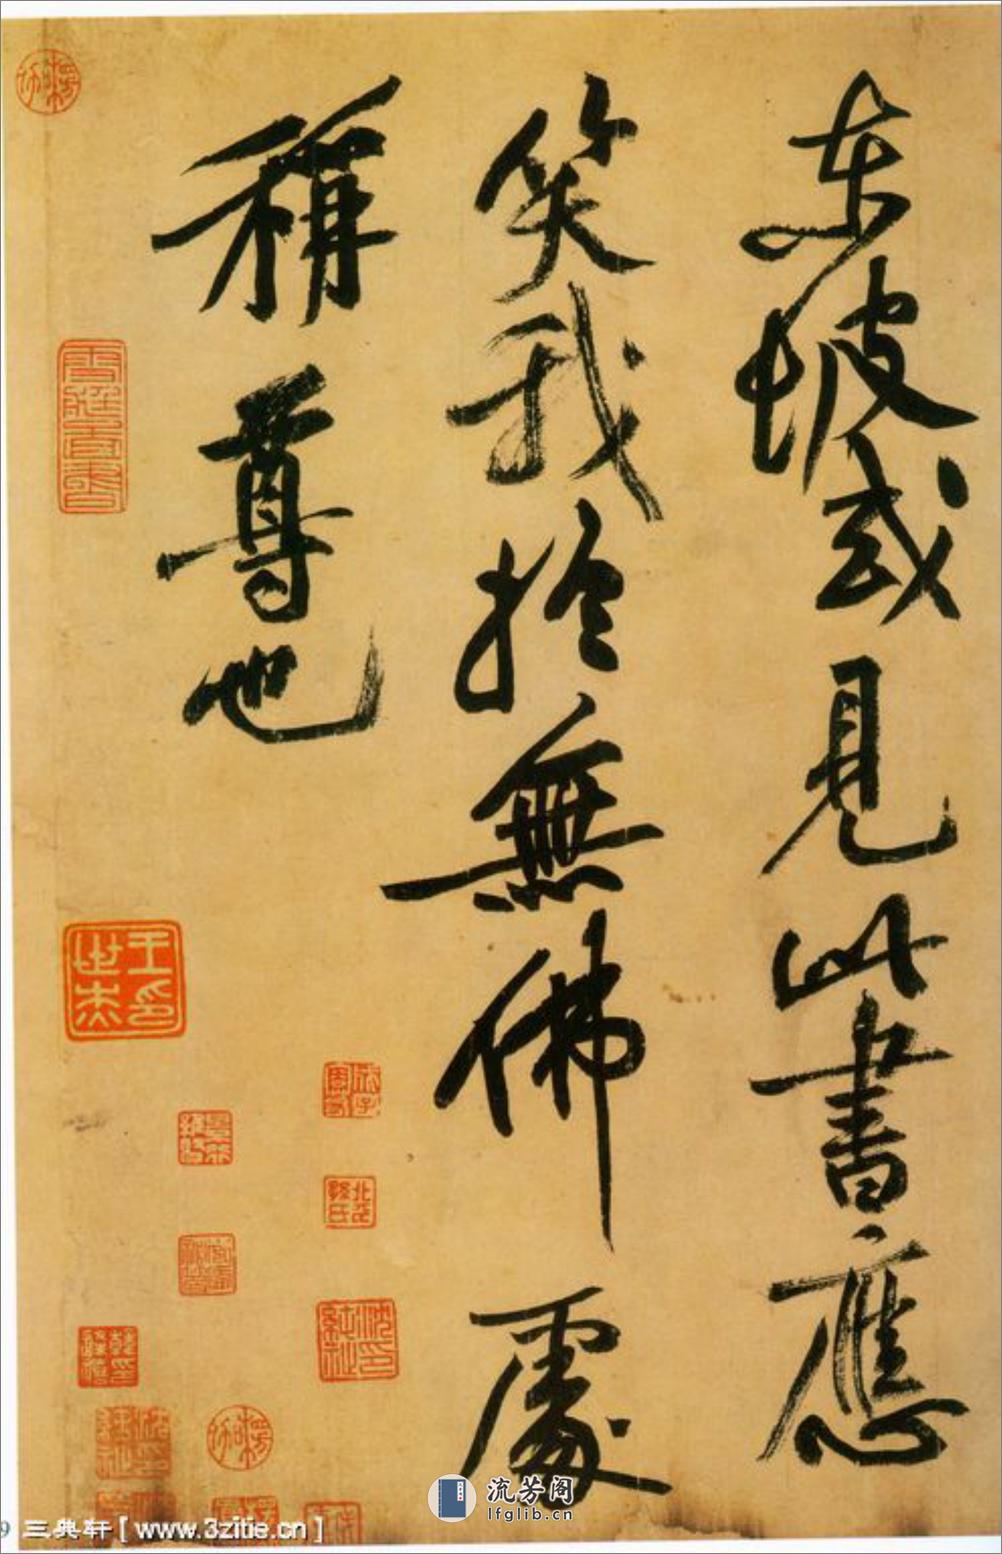 東坡或見此書應
笑我於無佛處
稱尊也
王印
之杰
三典轩[www.3zitie.cn]
流芳阁
lfglib.cn